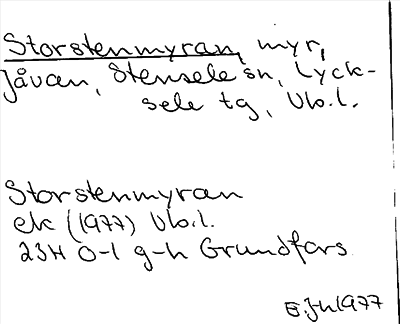 Storstenmyran, myr,
Jåvan, Stensele sn, Lyck-
sele tg, Vb.l.
Storstenmyran
ek (1977) Vb.l.
23H 0-1 g-h Grundfors
E.Jh 1977